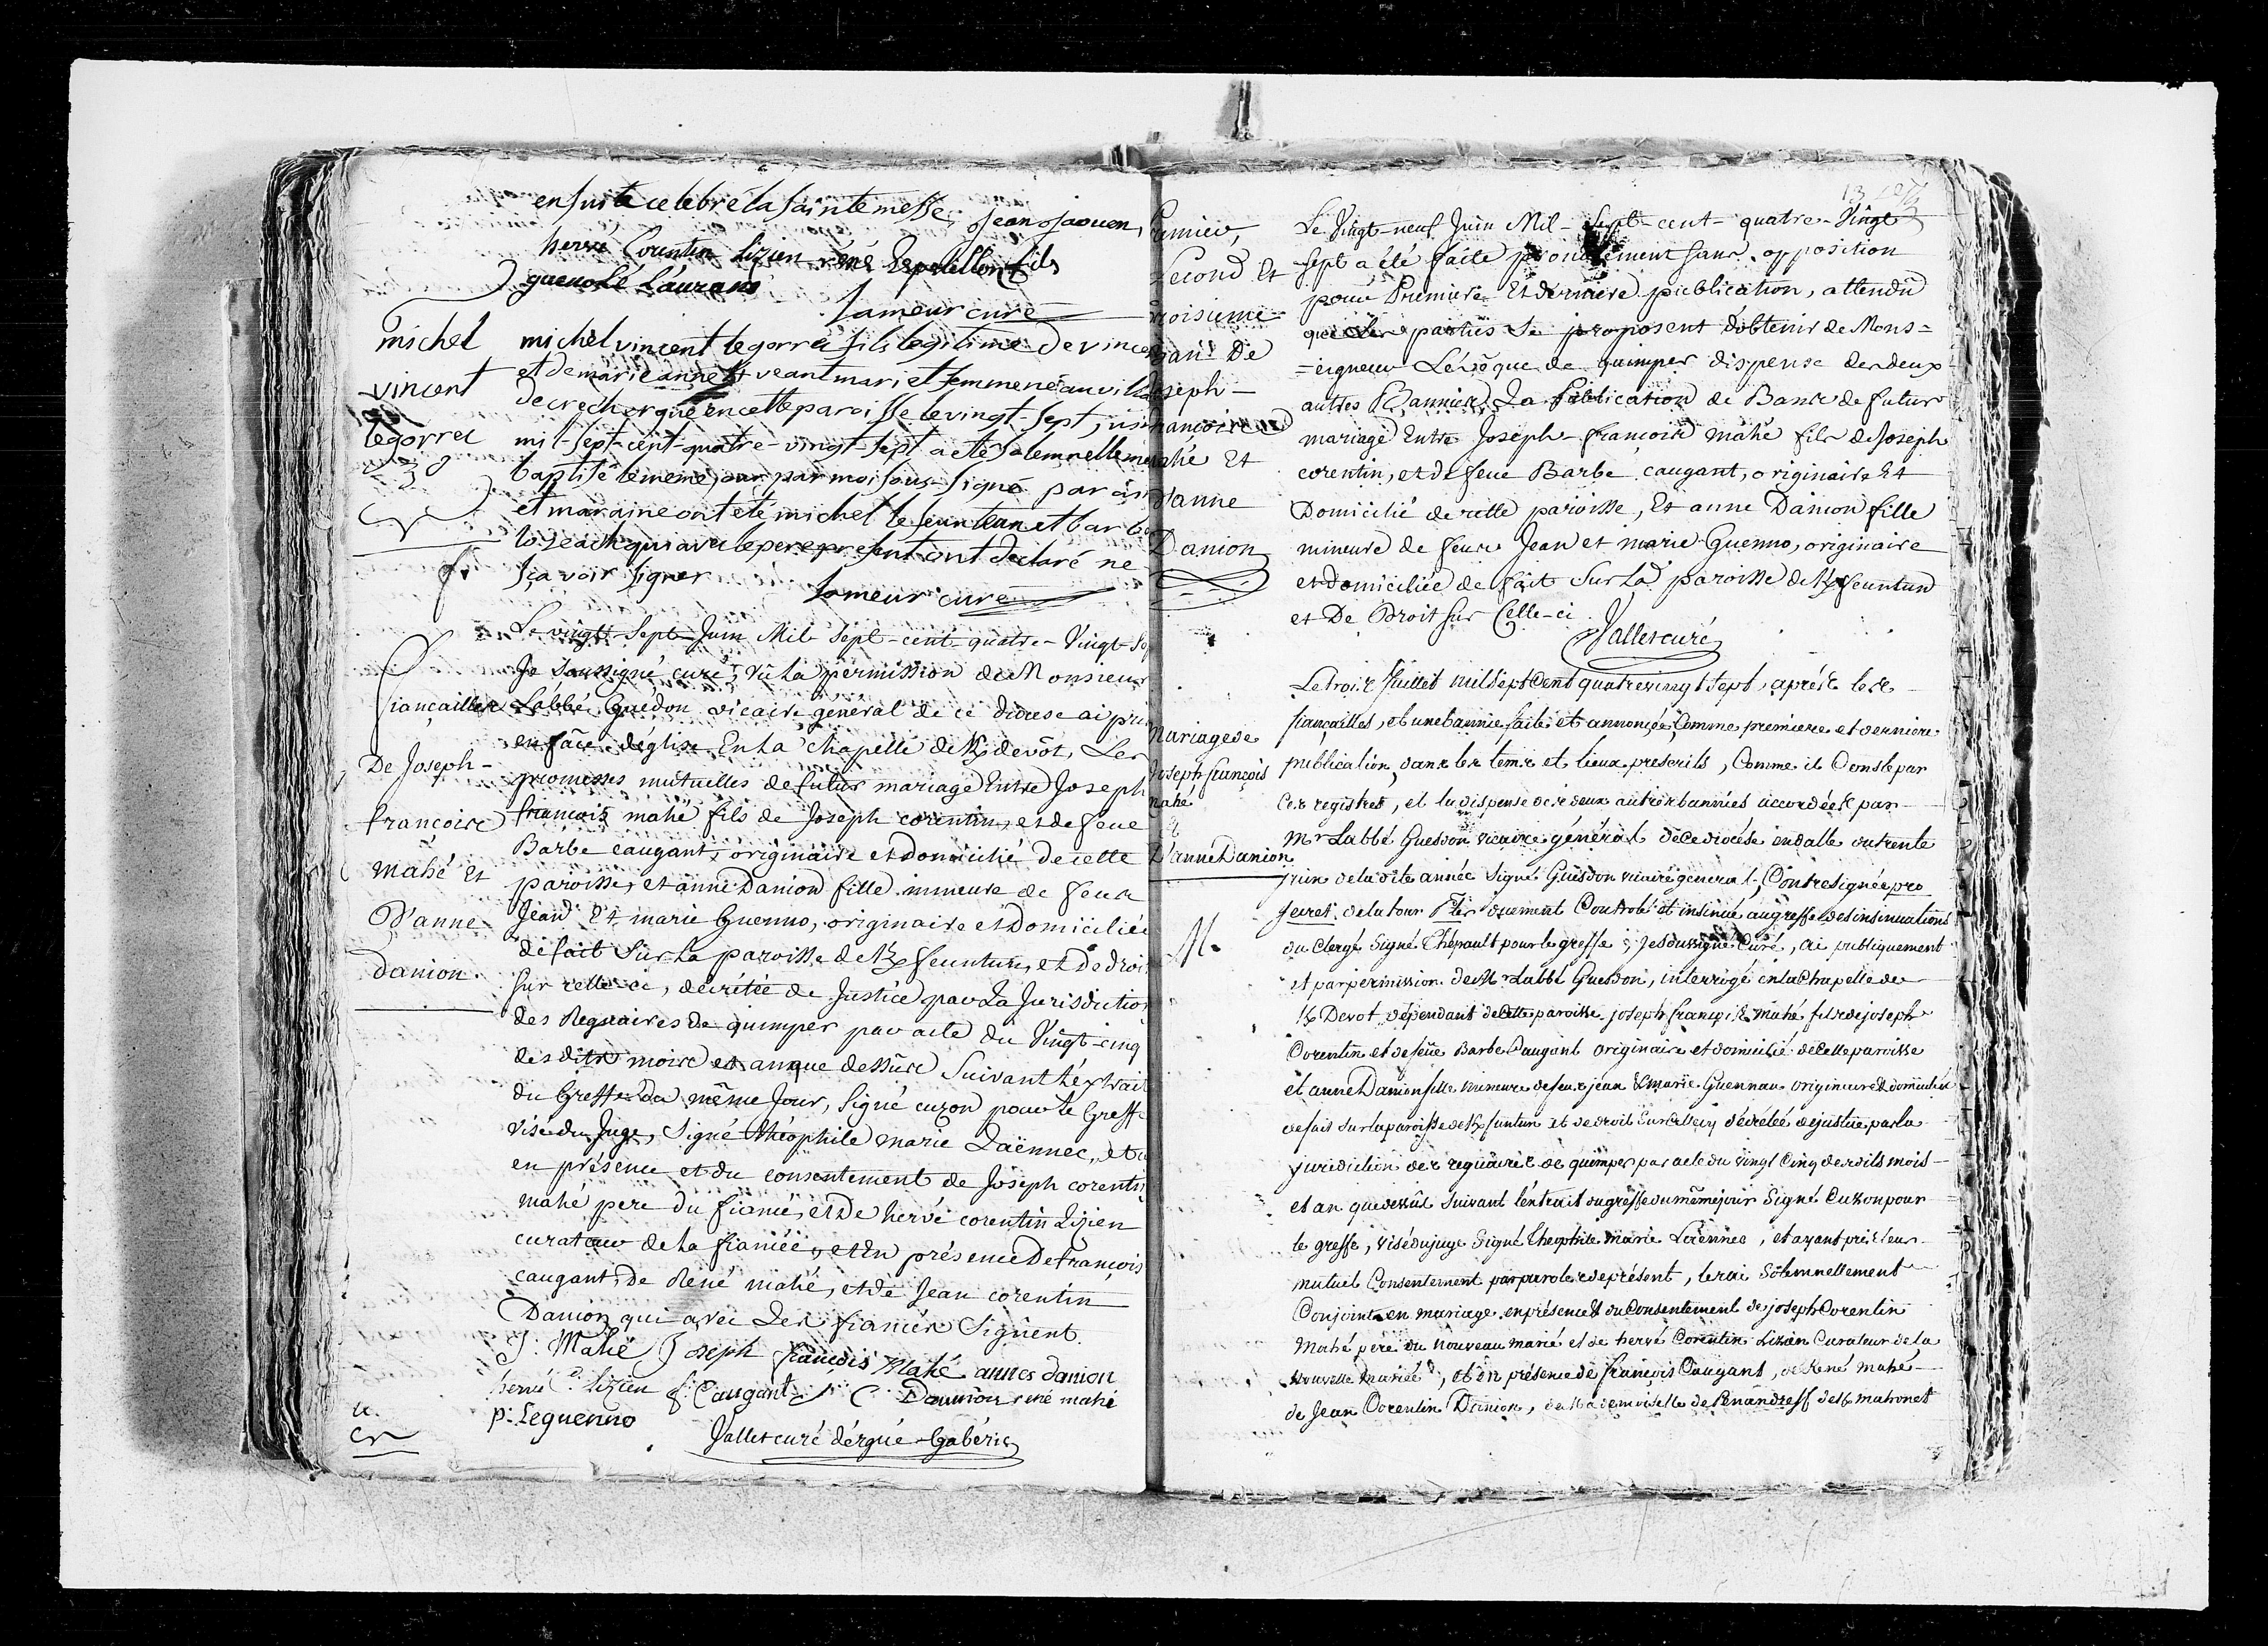 ensuite celebré la sainte messe, Jean Jaouen,
hervé Corentin lizien réné Lepetillon fils
guenolé Laurans
Lameur curé
michel
vincent
legorrec
michel vincent legorrec fils legitime de vincent
et de marieanne veant mari et femme né au vill
de crecherque en cette paroisse le vingt-sept juin
mil-sept-cent-quatre-vingt-sept a eté solemnellement
baptisé le meme jour par moi sous-signé parain
et maraine ont été michel le feunteun et barbe
lozeach qui avec le pere present ont declaré ne
sçavoir signer
Lameur curé
fiançailles
De Joseph-
françois
mahé Et
D'anne
danion
Le vingt-Sept Juin Mil-Sept-cent-quatre-Vingt-Sep
Je soussigné curé, vû la permission de Monsieur
L'abbé Guédon vicaire général de ce diocese ai pris
en face d'église En La chapelle de K/devôt, Les
promesses mutuelles de futur mariage Entre Joseph
françois mahé fils de Joseph corentin, et de feue
Barbe caugant, originaire et domicilié de cette
paroisse, et anne Danion fille mineure de feux
Jean Et marie Guenno, originaire et Domiciliée
de fait Sur la paroisse de K/feunteun, et De droit
Sur celle-ci, décrétée de Justice par La Jurisdiction
des Reguaires de quimper par acte du Vingt-cinq
des dits mois et an que dessûs Suivant L'éxtrait
du Greffe du même Jour, Signé cuzon pour le Greffe
visé du Juge, Signé théophile marie Laënnec, et ce
en présence et du consentement de Joseph corentin
mahé pere du fiancé, et De hervé corentin Lizien
curateur de la fiancée, et En présence De françois
caugant, de René mahé, et de Jean corentin
Danion qui avec Les fiancés Signent.
J: Mahé Joseph françois Mahé anne danion
hervé C. lizien f: Caugant J C Dannion rené mahé
p: Leguenno
Vallet curé d'érgué-Gabéric
Premier,
Second Et
troisieme
ban De
Joseph-
françois
mahé Et
d'anne
Danion
Le Vingt-neuf Juin Mil-Sept-cent-quatre-Vingt
Sept a été faite pronalement Sans opposition
pour Premiere Et derniere publication, attendu
que Les parties Se proposent d'obtenir de Mons=
=eigneur L'évêque de quimper dispense des deux
autres Bannies, La Publication de Bans de futur
mariage Entre Joseph-françois mahé fils de Joseph
corentin, et de feue Barbe caugant, originaire Et
Domicilié de cette paroisse, Et anne Danion fille
mineure de feux Jean et marie Guenno, originaire
et Domiciliée de fait Sur La paroisse de K/feunteun
et De Droit Sur Celle-ci
Vallet curé
Mariage de
Joseph françois
mahé
&
D'anne Danion
M.
Le trois Juillet mil sept Cent quatrevingt sept, après les
fiançailles, et une bannie faite et annoncée Comme premiere et derniere
publication, dans les tems et lieux prescrits, Comme il Conste par
Ces registres, et la dispense de deux autres bannies accordée par
Mr Labbé Guesdon vicaire général de Ce diocèse en datte du trente
juin de la dite année Signé Guesdon vicaire general, Contresignée pro
secret. de la tour duement Controlé et insinué au greffe des insinuations
du Clergé Signé Thepault pour le greffe, je soussigné Curé, ai publiquement
et par permission de Mr Labbé Guesdon, interrogé en la Chapelle de
K/Devot dépendant de Cette paroisse joseph françois Mahé fils de joseph
Corentin et de feüe Barbe Caugant originaire et domicilié de Cette paroisse
et anne Danion fille mineure de feux jean & marie Guennau originaire & domiciliée
de fait sur la paroisse de K/funtun et de droit sur Celle cy décrétée de justice par la
jurisdiction des reguaires de quimper par acte du vingt Cinq des dits mois
et an que dessus suivant l'extrait du greffe du même jour Signé Cuzon pour
le greffe, visé du juge Signé Theophile Marie Laennec, et ayant pris leur
mutuel Consentement par paroles de présent, les ai Solemnellement
Conjoints en mariage en présence & du Consentement de joseph Corentin
Mahé pere du nouveau marié et de hervé Corentin Lizien Curateur de la
nouvelle Mariée, et en présence de françois Caugant, de René Mahé
de Jean Corentin Danion, de Mademoiselle de Penandreff de K/mahonet